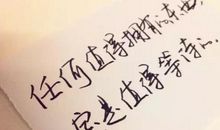 任何值得拥有的东西，
定是值得等待的